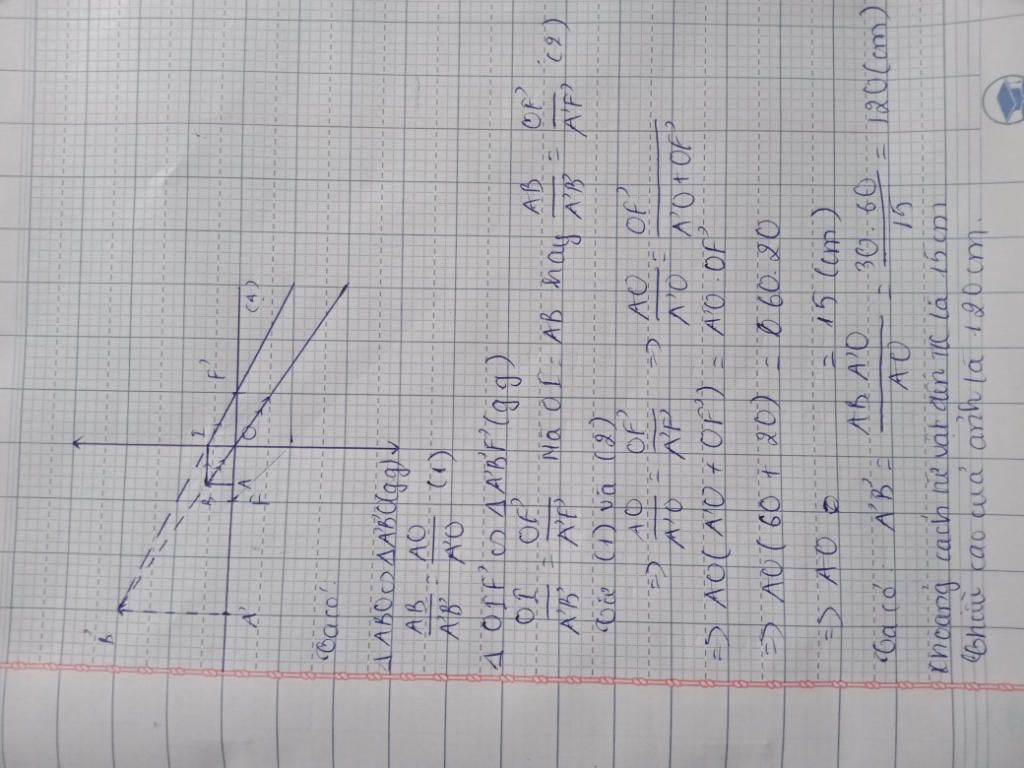 B'
I
B
F'
(Δ)
A'
F
A
O
Ta có:
Δ ABO ∽ Δ A'B'O (gg)
AB/A'B' = AO/A'O (1)
Δ OIF' ∽ Δ A'B'F' (gg)
OI/A'B' = OF'/A'F' Mà OI = AB hay AB/A'B' = OF'/A'F' (2)
Từ (1) và (2)
=> AO/A'O = OF'/A'F' => AO/A'O = OF'/A'O+OF'
=> AO(A'O + OF') = A'O.OF'
=> AO(60 + 20) = 60.20
=> AO = 15 (cm)
Ta có: A'B' = AB.A'O/AO = 30.60/15 = 120(cm)
Khoảng cách từ vật đến TK là 15cm
Chiều cao của ảnh là 120cm.